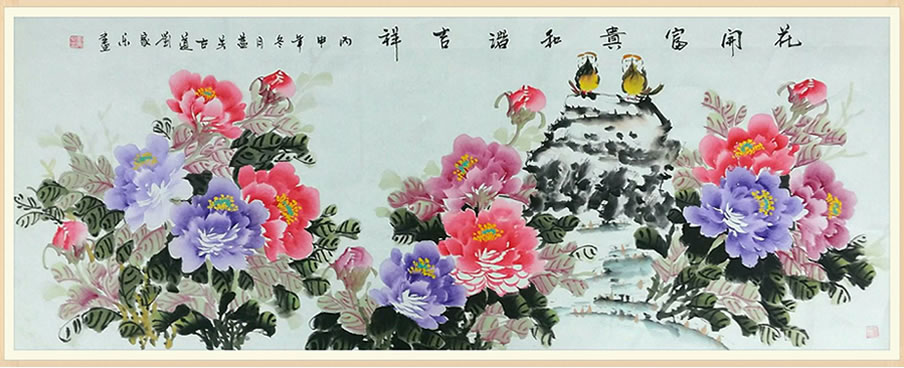 花開富貴和諧吉祥 丙申年冬月 古 劉家乐畫